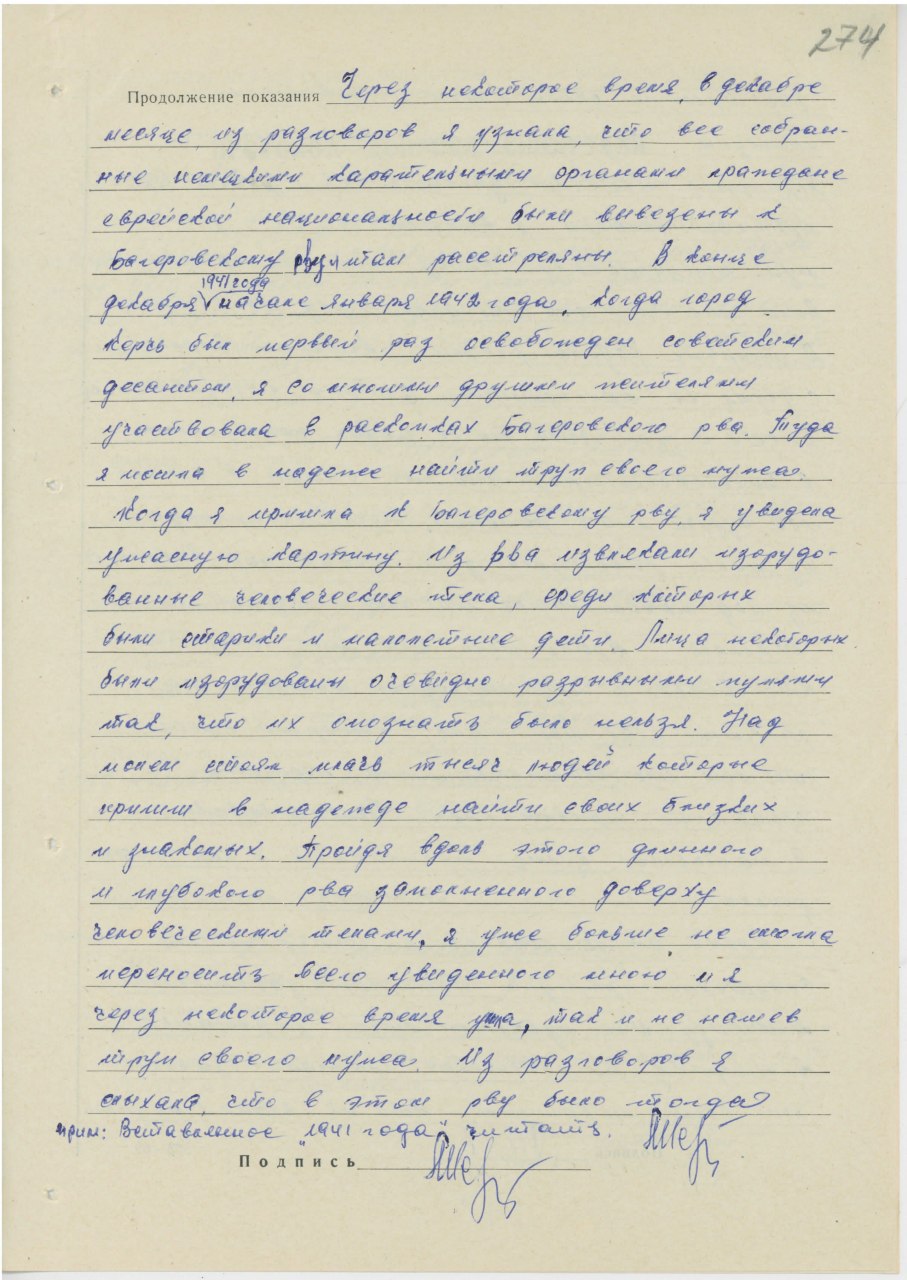 274
Продолжение показания Через некоторое время, в декабре
месяце, из разговоров я узнала, что все собран-
ные немецкими карательными органами граждане
еврейской национальности были вывезены к
Багеровскому рву и там расстреляны. В конце
1941 года
декабря начале января 1942 года, когда город
Керчь был первый раз освобожден советским
десантом, я со многими другими жителями
участвовала в раскопках Багеровского рва. Туда
я пошла в надежде найти труп своего мужа.
Когда я пришла к Багеровскому рву, я увидела
ужасную картину. Из рва извлекали изорудо-
ванные человеческие тела, среди которых
были старики и малолетние дети. Лица некоторых
были изорудованы очевидно разрывными пулями
так, что их опознать было нельзя. Над
полем стоял плачь тысяч людей которые
пришли в надежде найти своих близких
и знакомых. Пройдя вдоль этого длинного
и глубокого рва заполненного доверху
человеческими телами, я уже больше не смогла
переносить всего увиденного мною и я
через некоторое время ушла, так и не нашев
труп своего мужа. Из разговоров я
слыхала, что в этом рву было тогда
прим: Вставленное "1941 года" читать.
Подпись